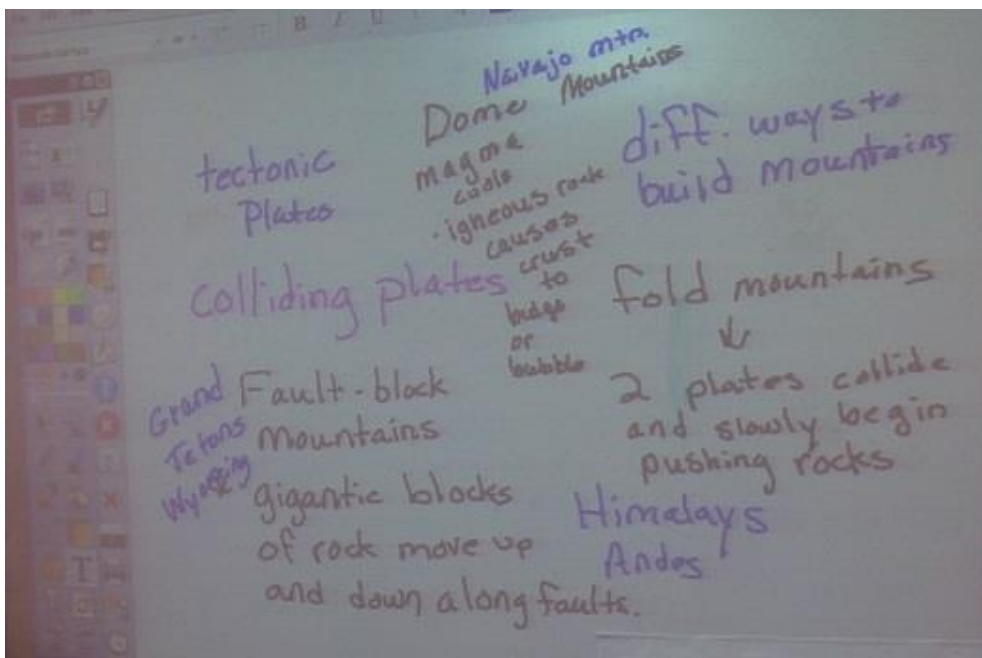 Navajo mtn.
Dome Mountains
magma
cools
. igneous rock
causes
crust
to
budge
or
bubble
tectonic
Plates
diff. ways to
build mountains
colliding plates
fold mountains
2 plates collide
and slowly begin
pushing rocks
Himalays
Andes
Grand
Tetons
Wyoming
Fault-block
Mountains
gigantic blocks
of rock move up
and down along faults.